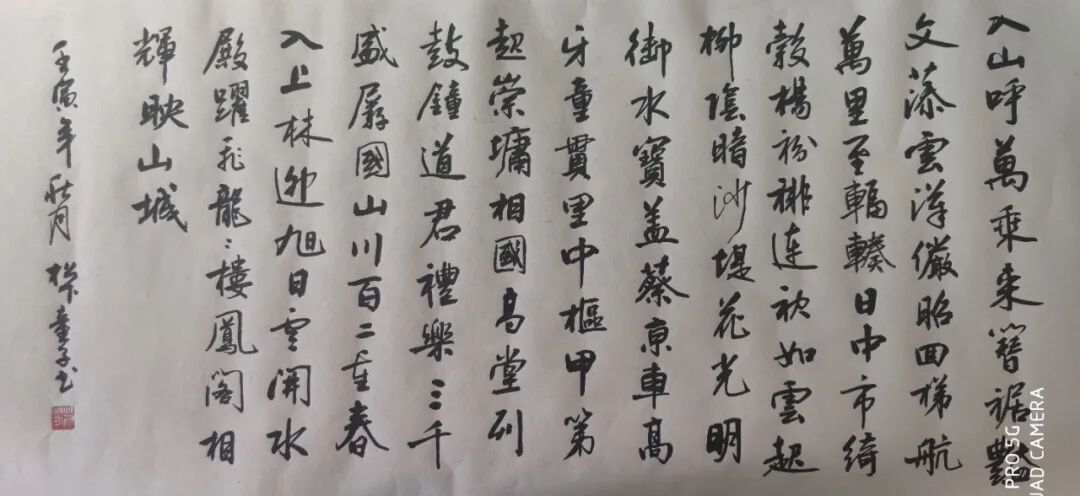 入山呼萬乘来簪裾艷
文藻雲漢儼昭回梯航
萬里至輻輳日中市綺
縠楊连衽如雲起
柳陰暗沙堤花光明
御水寶盖蔡京車高
牙童貫里中樞甲第
起崇墉相國高堂列
鼓鐘道君禮樂三千
盛孱國山川百二重春
入上林迎旭日雲開水
殿躍飛龍〻樓鳳閣相
輝映山城
壬寅年秋月 童子书
PRO 5G
UAD CAMERA